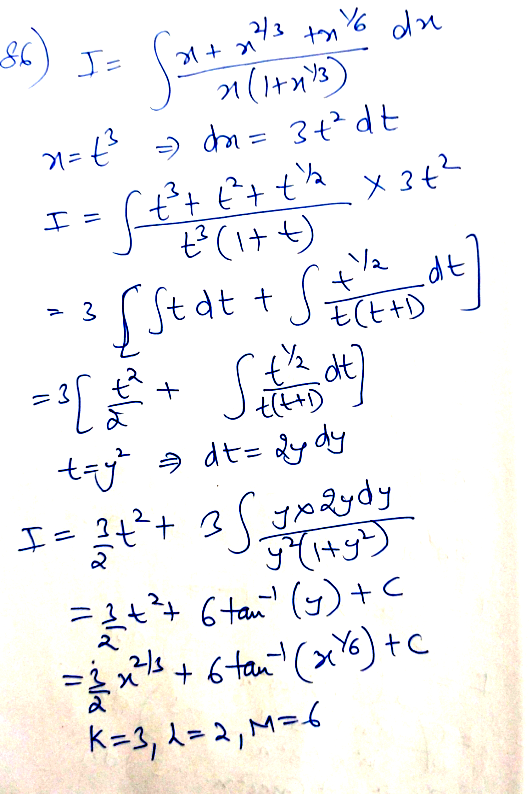 86) I = ∫ x + x^2/3 + x^1/6 / x(1+x^1/3) dx
x=t^3 ⇒ dx = 3t^2 dt
I = ∫ t^3 + t^2 + t^1/2 / t^3(1+t) × 3t^2
= 3 [∫t dt + ∫ t^1/2 / t(t+1) dt]
= 3[t^2/2 + ∫ t^1/2 / t(t+1) dt]
t=y^2 ⇒ dt = 2y dy
I = 3/2 t^2 + 3 ∫ y×2y dy / y^2(1+y^2)
= 3/2 t^2 + 6 tan^-1 (y) + C
= 3/2 x^2/3 + 6 tan^-1 (x^1/6) + C
K=3, λ=2, M=6